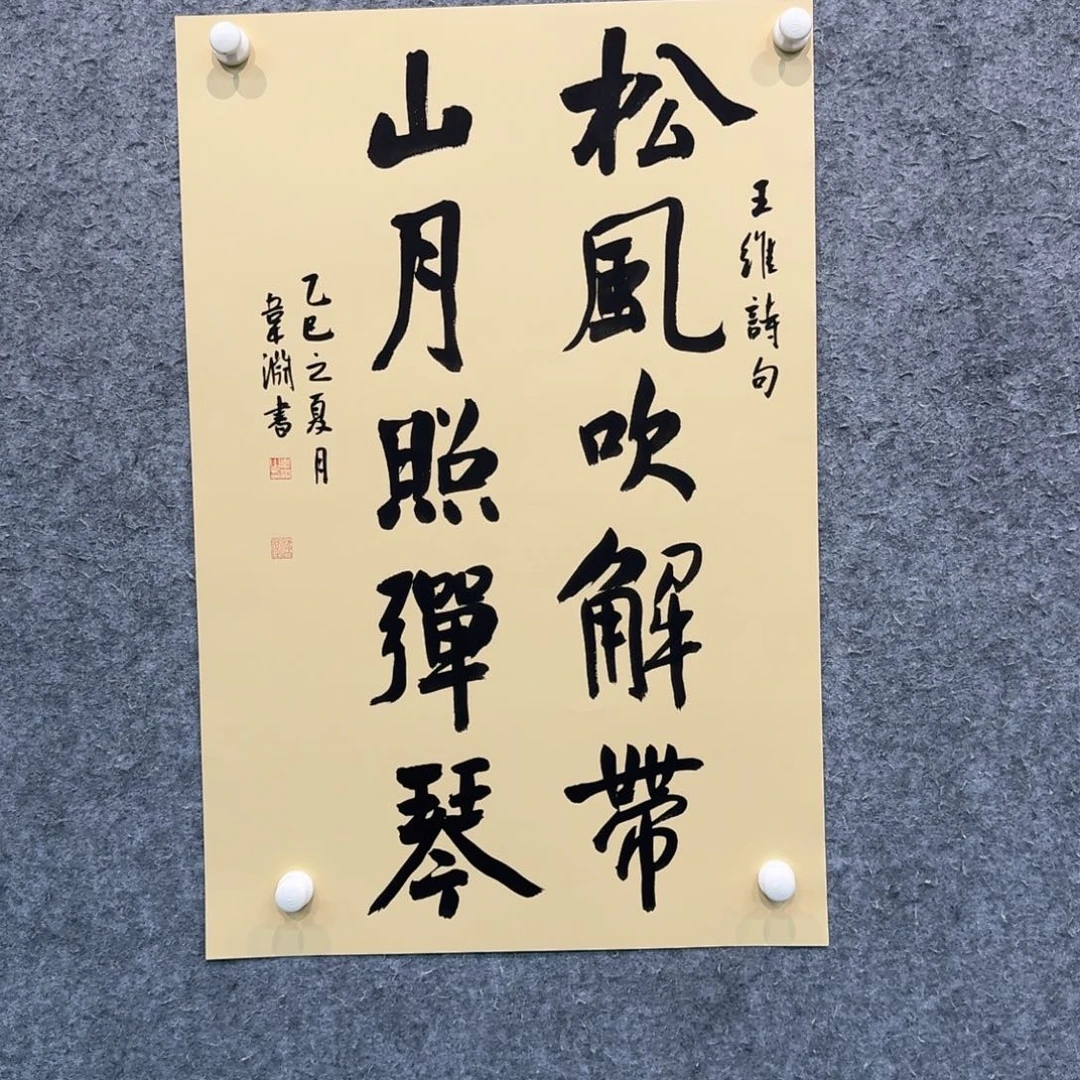 王維詩句
松風吹解帶
山月照彈琴
乙巳之夏月
韋淵書